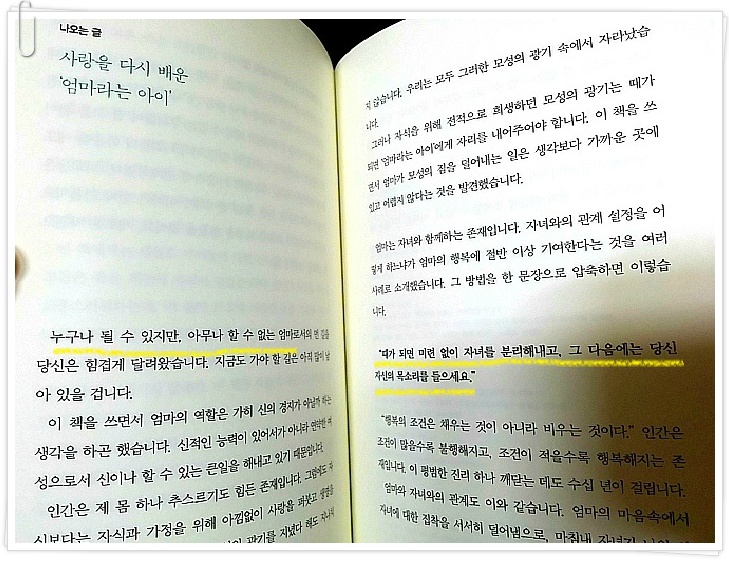 나오는 글
사랑을 다시 배운
‘엄마라는 아이’
누구나 될 수 있지만, 아무나 할 수 없는 엄마로서의 먼 길을
당신은 힘겹게 달려왔습니다. 지금도 가야 할 길은 아직 많이 남
아 있을 겁니다.
이 책을 쓰면서 엄마의 역할은 가히 신의 경지가 아닐까 하는
생각을 하곤 했습니다. 신적인 능력이 있어서가 아니라 연약한 여
성으로서 신이나 할 수 있는 큰일을 해내고 있기 때문입니다.
인간은 제 몸 하나 추스르기도 힘든 존재입니다. 그럼에도 자
신보다는 자식과 가정을 위해 아낌없이 사랑을 퍼붓고 생명을
광기를 지녔다 해도 지나치
지 않습니다. 우리는 모두 그러한 모성의 광기 속에서 자라났습
니다.
그러나 자식을 위해 전적으로 희생하던 모성의 광기는 때가
되면 ‘엄마라는 아이’에게 자리를 내어주어야 합니다. 이 책을 쓰
면서 엄마가 모성의 짐을 덜어내는 일은 생각보다 가까운 곳에
있고 어렵지 않다는 것을 발견했습니다.
엄마는 자녀와 함께하는 존재입니다. 자녀와의 관계 설정을 어
떻게 하느냐가 엄마의 행복에 절반 이상 기여한다는 것을 여러
사례로 소개했습니다. 그 방법을 한 문장으로 압축하면 이렇습
니다.
“때가 되면 미련 없이 자녀를 분리해내고, 그 다음에는 당신
자신의 목소리를 들으세요.”
“행복의 조건은 채우는 것이 아니라 비우는 것이다.” 인간은
조건이 많을수록 불행해지고, 조건이 적을수록 행복해지는 존
재입니다. 이 평범한 진리 하나 깨닫는 데도 수십 년이 걸립니다.
엄마와 자녀와의 관계도 이와 같습니다. 엄마의 마음속에서
자녀에 대한 집착을 서서히 덜어냄으로, 마침내 자녀가